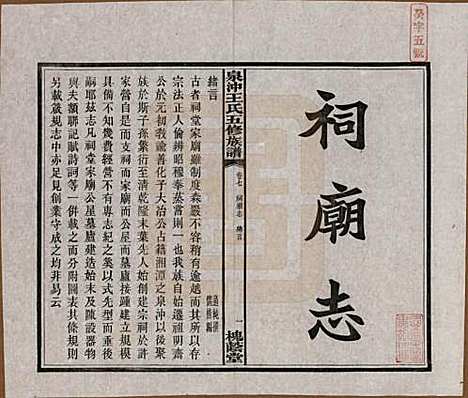 癸字五號
祠廟志
泉沖王氏五修族譜
卷七 祠廟志 緒言
一 槐蔭堂
緒言
古者祠堂家廟雖制度森嚴不容稍有逾越而
宗法正人倫辨昭穆奉蒸嘗則一也我族自始遷祖明齋
公於元初緣論善化子大治公占籍湘潭之泉沖以後聚
族於斯子孫繁衍至清乾隆末葉先人始創建宗祠於
支祠而家廟而公屋而墓廬接踵建立規模
具備不知幾費經營不有專志紀之奚以式先型而垂後
嗣耶茲志凡祠堂家廟公屋墓廬建造始末及陳設器物
與夫額聯記賦詩詞等一併載之而分附圖表其條規則
另載藏規志中亦足見創業守成之均非易易云